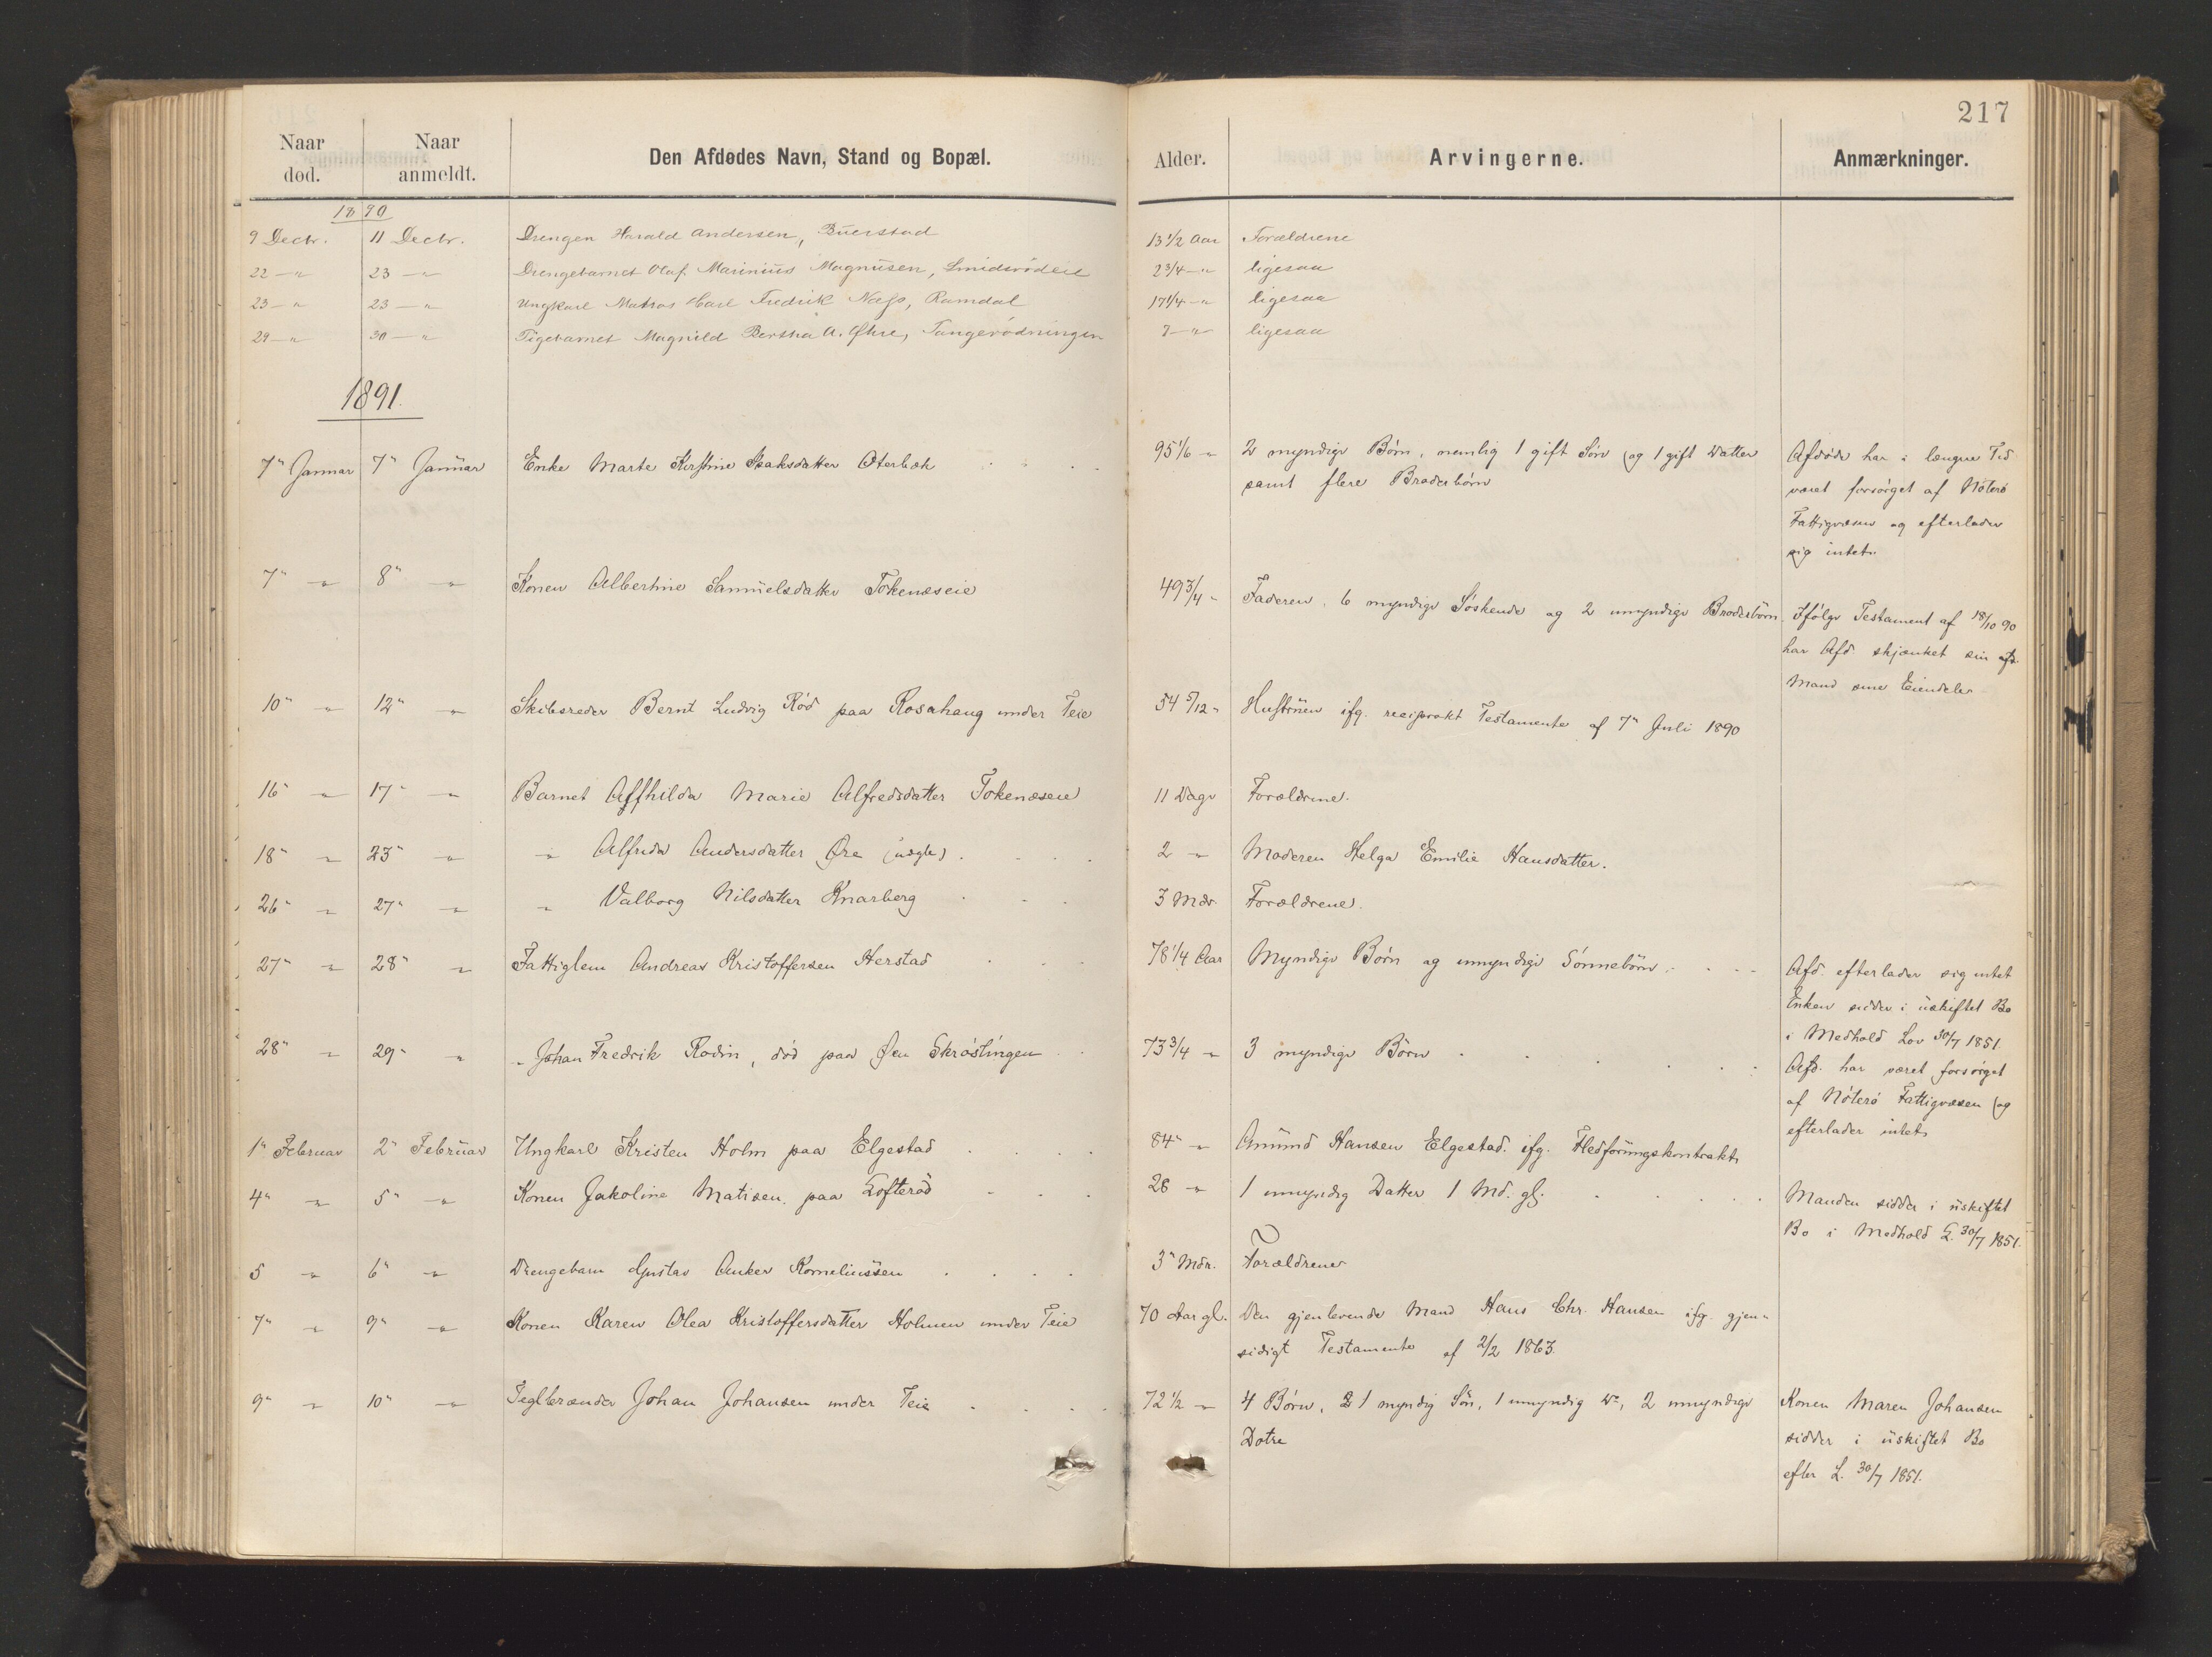 217
Naar død. Naar anmeldt. Den Afdødes Navn, Stand og Bopæl. Alder. Arvingerne. Anmærkninger.
1890
9 Decbr. 11 Decbr. Drengen Harald Andersen, Buerstad 13 1/2 Aar Forældrene
22 — " 23 — " Drengebarnet Olaf Marinius Magnusen, Smidsrødeie 2 3/4 — " ligesaa
23 — " 23 — " Ungkarl Matros Carl Fredrik Næss, Ramdal 17 1/4 — " ligesaa
29 — " 30 — " Pigebarnet Magnild Bertha A. Øhre, Tangerødningen 7 — " ligesaa
1891.
7" Januar 7" Januar Enke Marte Kirstine Isaksdatter Oterbæk 95 1/6 — 2 myndige Børn, nemlig 1 gift Søn og 1 gift Datter Afdøde har i længere Tid
samt flere Broderbørn været forsørget af Nøterø
Fattigvæsen og efterlader
sig intet.
7" — " 8" — " Konen Albertine Samuelsdatter Tokenæseie 49 3/4 " Faderen, 6 myndige Søskende og 2 umyndige Broderbørn. Ifølge Testament af 18/10 90
har Afd. skjænket sin
Mand sine Eiendele
10" — " 12" — " Skibsreder Bernt Ludvig Rød paa Rosahaug under Teie 54 5/12 " Hustruen ifg. reciprokt Testamente af 7" Juli 1890
16" — " 17" — " Barnet Marie Alfredsdatter Tokenæseie 11 Dage Forældrene.
18" — " 23" — " — " Alfrida Andersdatter Øre (uægte) 2 — " Moderen Helga Emilie Hansdatter.
26" — " 27" — " — " Valborg Nilsdatter Knarberg 3 Mdr Forældrene.
27" — " 28" — " Fattiglem Andreas Kristoffersen Herstad 78 1/4 Aar Myndige Børn og umyndige Sønnebørn Afd. efterlader sig intet
Enken sidder i uskiftet Bo
i Medhold Lov 30/7 1851.
28" — " 29" — " — " Johan Fredrik Rodin, død paa Øen Skrøslingen 73 3/4 — " 3 myndige Børn Afd. har været forsørget
af Nøterø Fattigvæsen og
efterlader intet
1" Februar 2" Februar Ungkarl Kristen Holm paa Elgestad 84" — " Amund Hansen Elgestad. ifg. Fledføringskontrakt
4" — " 5" — " Konen Jakoline Matisen paa Lofterød 28 — " 1 umyndig Datter 1 Md. gl. Manden sidder i uskiftet
Bo i Medhold L. 30/7 1851.
5 — " 6" — " Drengebarn Gustav Anker Korneliussen 3" Mdr. Forældrene
7" — " 9" — " Konen Karen Olea Kristoffersdatter Holmen under Teie 70 Aar gl. Den gjenlevende Mand Hans Chr. Hansen ifg. gjen-
sidigt Testamente af 2/2 1863.
9" — " 10" — " Teglbrænder Johan Johansen under Teie 72 1/2 — " 4 Børn, 1 myndig Søn, 1 umyndig do, 2 umyndige Konen Maren Johansen
Døtre sidder i uskiftet Bo
efter L. 30/7 1851.